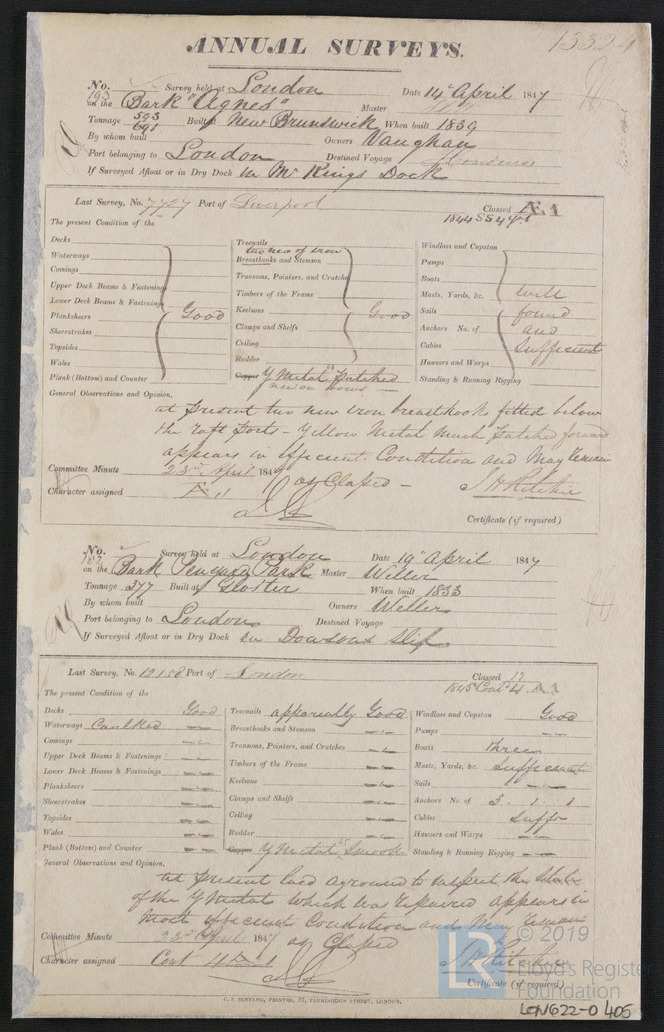 13324
ANNUAL SURVEYS.
No. 193 Survey held at London Date 14 April 1847
on the Bark "Agnes" Master
Tonnage 593 691 Built at New Brunswick When built 1839
By whom built Owners Vaughan
Port belonging to London Destined Voyage
If Surveyed Afloat or in Dry Dock In Mr Kings Dock
Last Survey, No. 7727 Port of Liverpool Classed Æ A1
1844 SS 4 yrs
The present Condition of the
Decks
Waterways
Comings
Upper Deck Beams & Fastenings
Lower Deck Beams & Fastenings
Planksheers Good
Sheerstrakes
Topsides
Wales
Plank (Bottom) and Counter
Treenails
two new of iron
Breasthooks and Stemson
Transoms, Pointers, and Crutches
Timbers of the Frame
Keelsons Good
Clamps and Shelfs
Ceiling
Rudder
Copper Y Metal Patched
new on bows
Windlass and Capstan
Pumps
Boats
Masts, Yards, &c. Well
Sails found
Anchors No. of and
Cables Sufficient
Hawsers and Warps
Standing & Running Rigging
General Observations and Opinion,
at present two new iron breasthooks fitted below
the raft ports - Yellow Metal much patched forward
appears in efficient Condition and May remain
Committee Minute 23rd April 1847 as Classed -
Character assigned Æ 1 J H Ritchie
Certificate (if required)
No. 182 Survey held at London Date 19 April 1847
on the Bark Penyard Park Master Weller
Tonnage 377 Built at Gloster When built 1833
By whom built Owners Weller
Port belonging to London Destined Voyage
If Surveyed Afloat or in Dry Dock In Dowsons Slip
Last Survey, No. 12156 Port of London Classed 12 A1
1845 Cont 4
The present Condition of the
Decks Good
Waterways Caulked
Comings
Upper Deck Beams & Fastenings
Lower Deck Beams & Fastenings
Planksheers
Sheerstrakes
Topsides
Wales
Plank (Bottom) and Counter
Treenails apparently Good
Breasthooks and Stemson
Transoms, Pointers, and Crutches
Timbers of the Frame
Keelsons
Clamps and Shelfs
Ceiling
Rudder
Copper Y Metal Smooth
Windlass and Capstan Good
Pumps
Boats three
Masts, Yards, &c. Sufficient
Sails
Anchors No. of 3. 1. 1
Cables Sufft
Hawsers and Warps
Standing & Running Rigging
General Observations and Opinion,
at present laid aground to inspect the state
of the Y Metal which was repaired appears in
most efficient Condition and May remain
Committee Minute 23rd April 1847 as Classed
Character assigned Cont 4 A1 J H Ritchie
Certificate (if required)
C. F. SEYFANG, PRINTER, 57, FARRINGDON STREET, LONDON.
LR © 2019
Lloyd's Register
Foundation
LON622-0405